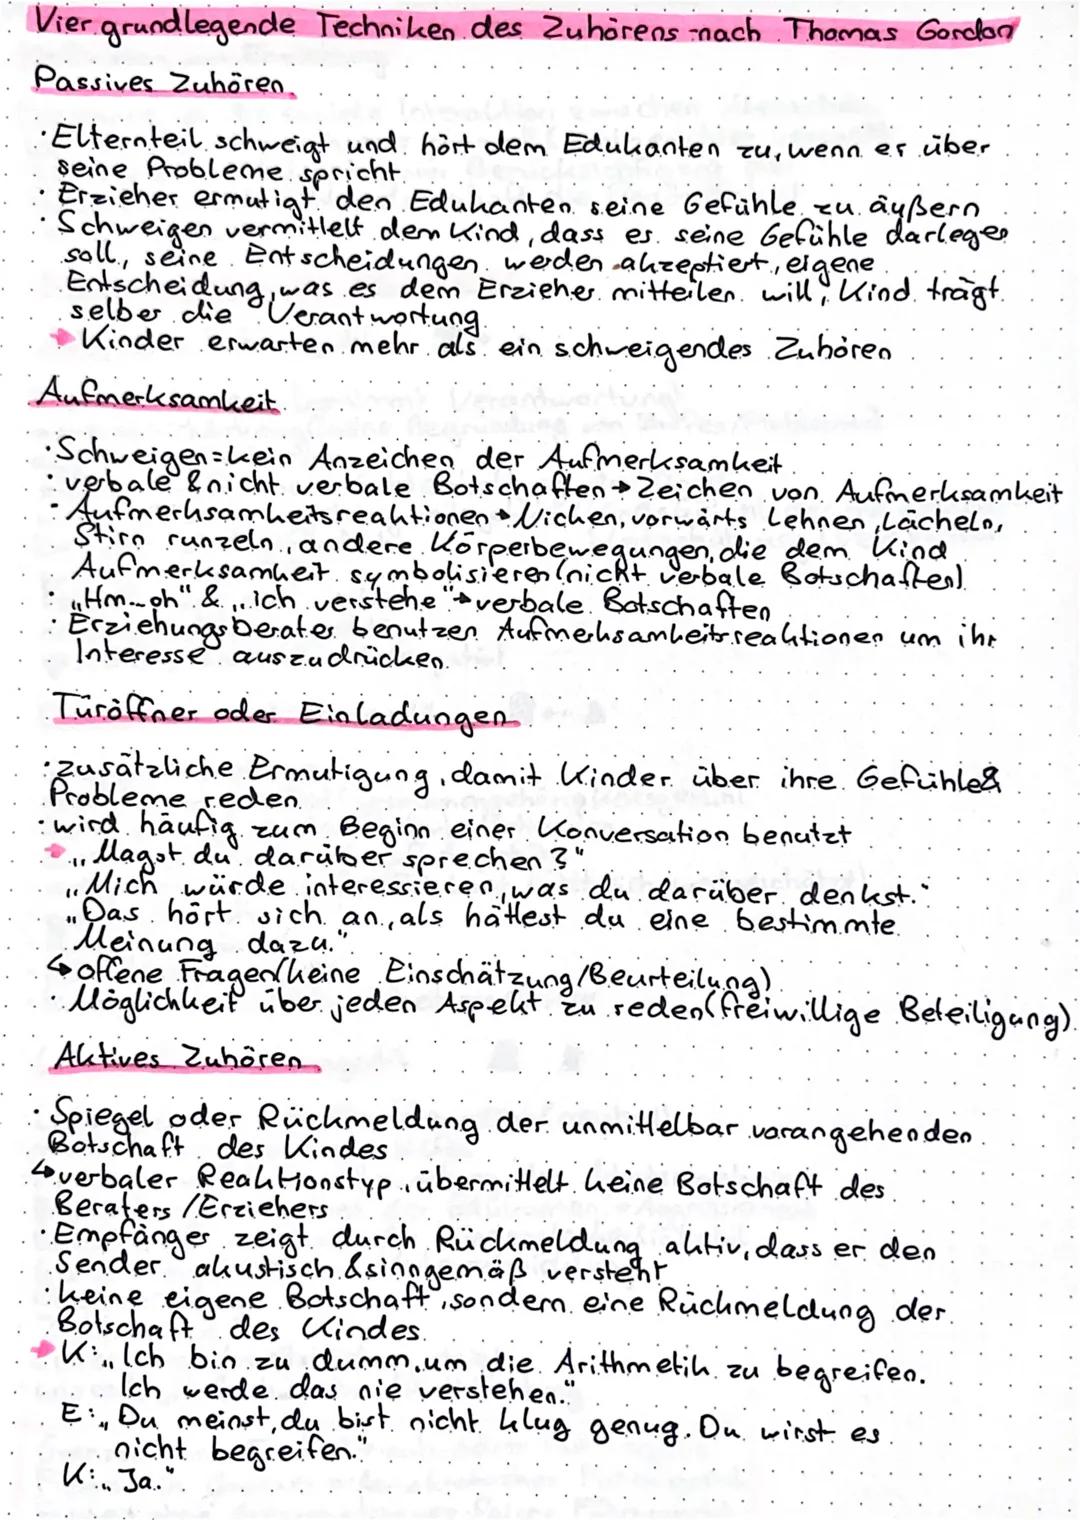 Vier grundlegende Techniken des Zuhörens nach Thomas Gordon
Passives Zuhören
· Elternteil schweigt und hört dem Edukanten zu, wenn er über
seine Probleme spricht
· Erzieher ermutigt den Edukanten seine Gefühle zu äußern
· Schweigen vermittelt dem Kind, dass es seine Gefühle darlegen
soll, seine Entscheidungen werden akzeptiert, eigene
Entscheidung, was es dem Erzieher mitteilen will, Kind trägt
selber die Verantwortung
→ Kinder erwarten mehr als ein schweigendes Zuhören
Aufmerksamkeit
· Schweigen = kein Anzeichen der Aufmerksamkeit
· verbale & nicht verbale Botschaften → Zeichen von Aufmerksamkeit
· Aufmerksamkeitsreaktionen → Nicken, vorwärts Lehnen, Lächeln,
Stirn runzeln, andere Körperbewegungen, die dem Kind
Aufmerksamkeit symbolisieren (nicht verbale Botschaften)
· „Hm...oh" & „ich verstehe" → verbale Botschaften
· Erziehungsberater benutzen Aufmerksamkeitsreaktionen um ihr
Interesse auszudrücken
Türöffner oder Einladungen
· zusätzliche Ermutigung, damit Kinder über ihre Gefühle &
Probleme reden
· wird häufig zum Beginn einer Konversation benutzt
→ „Magst du darüber sprechen?"
„Mich würde interessieren, was du darüber denkst."
„Das hört sich an, als hättest du eine bestimmte
Meinung dazu."
↳ offene Fragen (keine Einschätzung/Beurteilung)
· Möglichkeit über jeden Aspekt zu reden (freiwillige Beteiligung)
Aktives Zuhören
· Spiegel oder Rückmeldung der unmittelbar vorangehenden
Botschaft des Kindes
↳ verbaler Reaktionstyp, übermittelt keine Botschaft des
Beraters / Erziehers
· Empfänger zeigt durch Rückmeldung aktiv, dass er den
Sender akustisch & sinngemäß versteht
· keine eigene Botschaft, sondern eine Rückmeldung der
Botschaft des Kindes
→ K: „Ich bin zu dumm, um die Arithmetik zu begreifen.
Ich werde das nie verstehen."
E: „Du meinst, du bist nicht klug genug. Du wirst es
nicht begreifen."
K: „Ja."